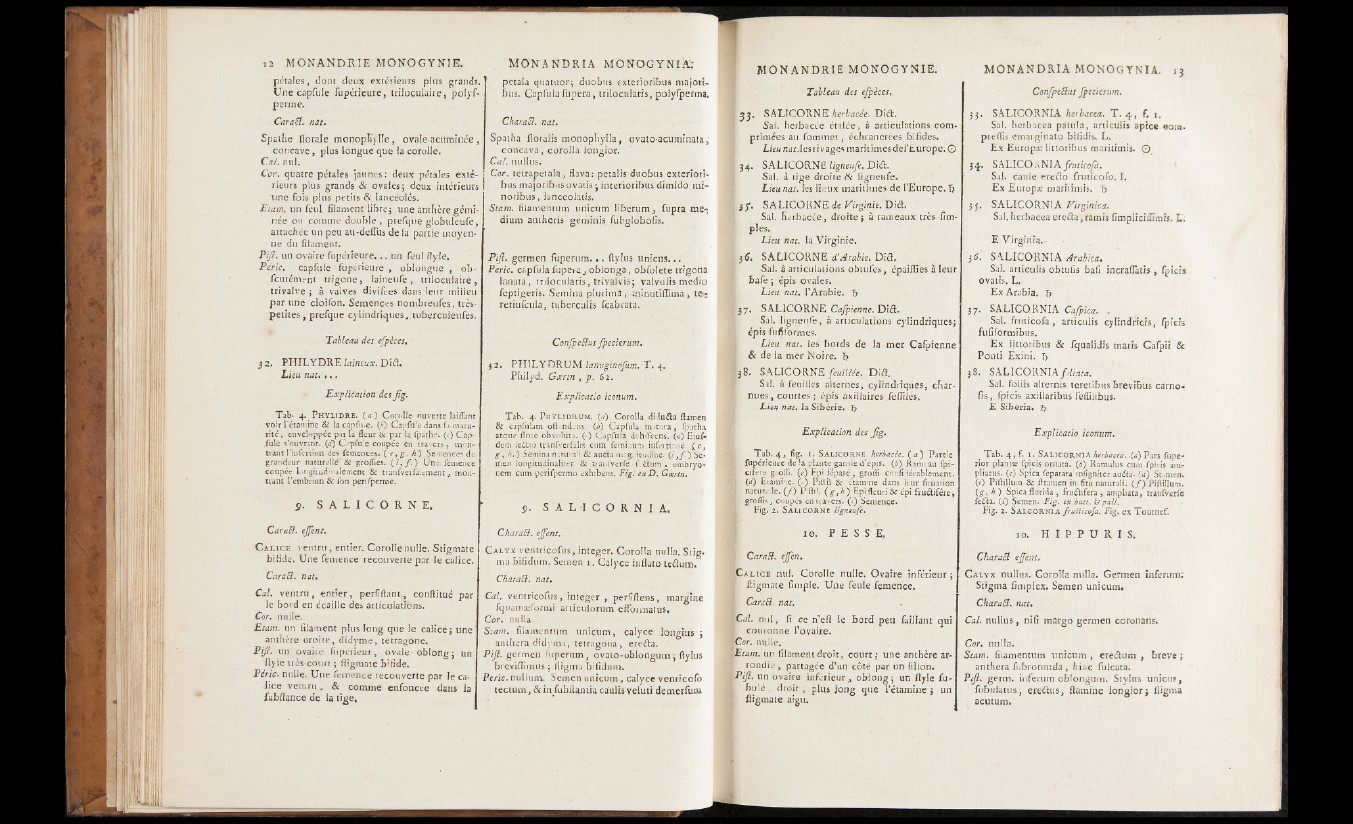 12 MONANDRIE MONOGYNIE.
pétales, dont deux extérieurs plus grands.
Une capſule ſupérieure, triloculaire, polyſ-
perme.
Caract. nat.
Spathe florale monophylle, ovale-acuminée,
concave, plus longue que la corolle.
Cal. nul.
Cor. quatre pétales jaunes: deux pétales exté-
rieurs plus grands & ovales; deux intérieurs
une fois plus petits & lancéolés.
Etam. un ſeul filament libre; une anthère gémi-
née ou comme double, preſque globuleuſe,
attachée un peu au-deſſus de la partie moyen-
ne du filament.
Piſt. un ovaire ſupérieure... un ſeul ſtyle.
Péric. capſule ſupérieure, oblongue, ob-
ſcurément trigone, laineuſe, triloculaire,
trivalve; à valves diviſées dans leur milieu
par une cloiſon. Semences nombreuſes, très-
petites, preſque cylindriques, tuberculeuſes.
Tableau des eſpèces.
32. PHILYDRE laineux. Dict.
Lieu nat. ...
Explication des fig.
Tab. 4. PHYLIDRE. (a) Corolle ouverte laiſſant
voir l'étamine & la capſule. (b) Capſule dans ſa matu-
rité, enveloppée par la fleur & par la ſpathe. (c) Cap-
ſule s'ouvrant. (d) Capſule coupée en travers, mon-
trant l'inſertion des ſemences. (e, g, h) Semences de
grandeur naturelle & groſſies. (i, f) Une ſemence
coupée longitudinalement & tranſverſalement, mon-
trant l'embrion & ſon périſperme.
9. SALICORNE.
Caract. eſſent.
CALICE ventru, entier. Corolle nulle. Stigmate
bifide. Une ſemence recouverte par le calice.
Caract. nat.
Cal. ventru, entier, perſiſtant, conſtitué par
le bord en écaille des articulations.
Cor. nulle.
Etam. un filament plus long que le calice; une
anthère droite, didyme, tetragone.
Piſt. un ovaire ſupérieur, ovale-oblong; un
ſtyle très-court; ſtigmate bifide.
Péric. nulle. Une ſemence recouverte par le ca-
lice ventru, & comme enfoncée dans la
ſubſtance de la tige.
MONANDRIA MONOGYNIA.
petala quatuor; duobus exterioribus majori-
bus. Capſula ſupera, trilocularis, polyſperma.
Charact. nat.
Spatha floralis monophylla, ovato-acuminata,
concava, corolla longior.
Cal. nullus.
Cor. tetrapetala, flava: petalis duobus exteriori-
bus majoribus ovatis; interioribus dimido mi-
noribus, lanceolatis.
Stam. filamentum unicum liberum, ſupra me-
dium antheris geminis ſubgloboſis.
Piſt. germen ſuperum... ſtylus unicus...
Peric. capſula ſupera, oblonga, obſolete trigona
lanata, trilocularis, trivalvis; valvulis medio
ſeptigeris. Semina plurima, minutiſſima, te-
retiuſcula, tuberculis ſcabrata.
Conſpectus ſpecierum.
32. PHILYDRUM lanuginoſum. T. 4.
Philyd. Gærtn, p. 62.
Explicatio iconum.
Tab. 4. PHYLIDRUM. (a) Corolla diducta ſtamen
& capſulam oſtendens. (b) Capſula matura, ſpatha
atque flore obvoluta. (c) Capſula dehiſcens. (d) Ejuſ-
dem ſectio tranſverſalis cum ſeminum inſertione. (e,
g, h.) Semina naturali & aucta magnitudine. (i, f) Se-
men longitudinaliter & tranſverſe ſectum, embryo-
nem cum periſpermo exhibens. Fig. ex D. Gærtn.
9. SALICORNIA.
Charact. eſſent.
CALYX ventricoſus, integer. Corolla nulla. Stig-
ma bifidum. Semen 1. Calyce inflato tectum.
Charact. nat.
Cal. ventricoſus, integer, perſiſtens, margine
ſquamæformi articulorum efformatus.
Cor. nulla
Stam. filamentum unicum, calyce longius;
anthera didyma, tetragona, erecta.
Piſt. germen ſuperum, ovato-oblongum; ſtylus
breviſſimus; ſtigma bifidum.
Peric. nullum. Semen unicum, calyce ventricoſo
tectum, & in ſubſtantia caulis veluti demerſum
MONANDRIE MONOGYNIE.
Tableau des eſpèces.
33. SALICORNE herbacée. Dict.
Sal. herbacée étalée, à articulations com-
primées au ſommet, échancrées bifides.
Lieu nat. les rivages maritimes de l'Europe. ☉
34. SALICORNE ligneuſe. Dict.
Sal. à tige droite & ligneuſe.
Lieu nat. les lieux maritimes de l'Europe. ♄
35. SALICORNE de Virginie. Dict.
Sal. herbacée, droite; à rameaux très-ſim-
ples.
Lieu nat. la Virginie.
36. SALICORNE d'Arabie. Dict.
Sal. à articulations obtuſes, épaiſſies à leur
baſe; épis ovales.
Lieu nat. l'Arabie. ♄
37. SALICORNE Caſpienne. Dict.
Sal. ligneuſe, à articulations cylindriques;
épis fuſiformes.
Lieu nat. les bords de la mer Caſpienne
& de la mer Noire. ♄
38. SALICORNE feuillée. Dict.
Sal. à feuilles alternes, cylindriques, char-
nues, courtes; épis axillaires ſeſſiles.
Lieu nat. la Sibérie. ♄
Explication des fig.
Tab. 4, fig. 1. SALICORNE herbacée. (a) Partie
ſupérieure de la plante garnie d'épis. (b) Rameau ſpi-
cifère groſſi. (c) Epi ſéparé, groſſi conſidérablement.
(d) Etamine. (e) Piſtil & étamine dans leur ſituation
naturelle. (f) Piſtil. (g, h) Epi fleuri & épi fructifère,
groſſis, coupés en travers. (i) Semence.
Fig. 2. SALICORNE ligneuſe.
10. PESSE.
Caract. eſſen.
CALICE nul. Corolle nulle. Ovaire inférieur;
ſtigmate ſimple. Une ſeule ſemence.
Caract. nat.
Cal. nul, ſi ce n'eſt le bord peu ſaillant qui
couronne l'ovaire.
Cor. nulle.
Etam. un filament droit, court; une anthère ar-
rondie, partagée d'un côté par un ſillon.
Piſt. un ovaire inférieur, oblong; un ſtyle ſu-
bulé, droit, plus long que l'étamine; un
ſtigmate aigu.
MONANDRIA MONOGYNIA. 13
Conſpectus ſpecierum.
33. SALICORNIA herbacea. T. 4, f. 1.
Sal. herbacea patula, articulis apice com-
preſſis emarginato bifidis. L.
Ex Europæ littoribus maritimis. ☉
34. SALICORNIA fruticoſa.
Sal. caule erecto fruticoſo. L.
Ex Europæ maritimis. ♄
35. SALICORNIA Virginica.
Sal. herbacea erecta, ramis ſimpliciſſimis. L.
E Virginia.
36. SALICORNIA Arabica.
Sal. articulis obtuſis baſi incraſſatis, ſpicis
ovatis. L.
Ex Arabia. ♄
37. SALICORNIA Caſpica.
Sal. fruticoſa, articulis cylindricis, ſpicis
fuſiformibus.
Ex littoribus & ſqualidis maris Caſpii &
Ponti Exini. ♄
38. SALICORNIA foliata.
Sal. foliis alternis teretibus brevibus carno-
ſis, ſpicis axillaribus ſeſſilibus.
E Siberia. ♄
Explicatio iconum.
Tab. 4, f. 1. SALICORNIA herbacea. (a) Pars ſupe-
rior plantæ ſpicis onuſta. (b) Ramulus cum ſpicis am-
pliatus. (c) Spica ſeparata inſigniter aucta. (d) Stamen.
(e) Piſtillum & ſtamen in ſitu naturali. (f) Piſtillum.
(g, h) Spica florida, fructifera, ampliata, tranſverſe
ſecta. (i) Semen. Fig. ex
Fig. 2. SALCORNIA fruticoſa. Fig. ex Tournef.
10. HIPPURIS.
Charact. eſſent.
CALYX nullus. Corolla nulla. Germen inferum.
Stigma ſimplex. Semen unicum.
Charact. nat.
Cal. nullus, niſi margo germen coronans.
Cor. nulla.
Stam. filamentum unicum, erectum, breve;
anthera ſubrotunda, hinc ſulcata.
Piſt. germ. inferum oblongum. Stylus unicus,
ſubulatus, erectus, ſtamine longior; ſtigma
acutum.